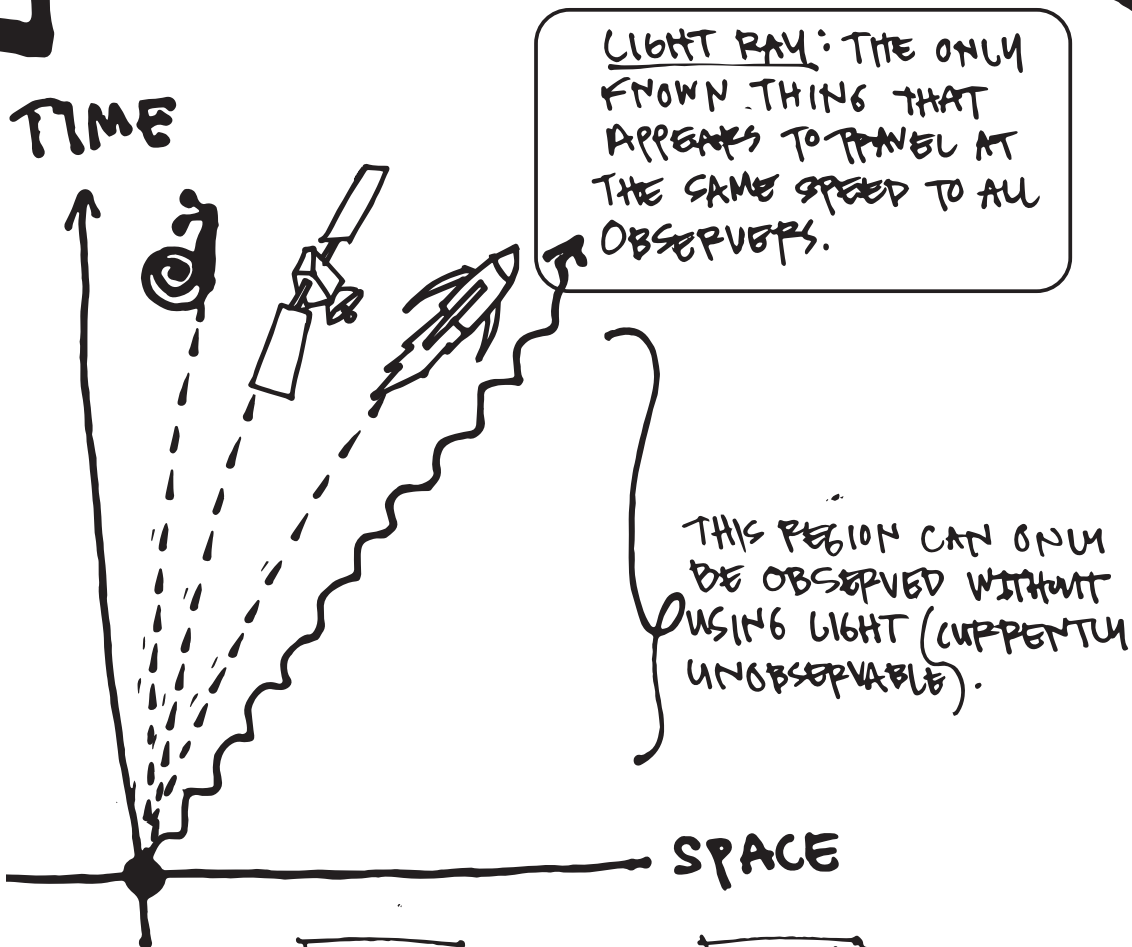 TIME
LIGHT RAY: THE ONLY
KNOWN THING THAT
APPEARS TO TRAVEL AT
THE SAME SPEED TO ALL
OBSERVERS.
THIS REGION CAN ONLY
BE OBSERVED WITHOUT
USING LIGHT (CURRENTLY
UNOBSERVABLE).
SPACE